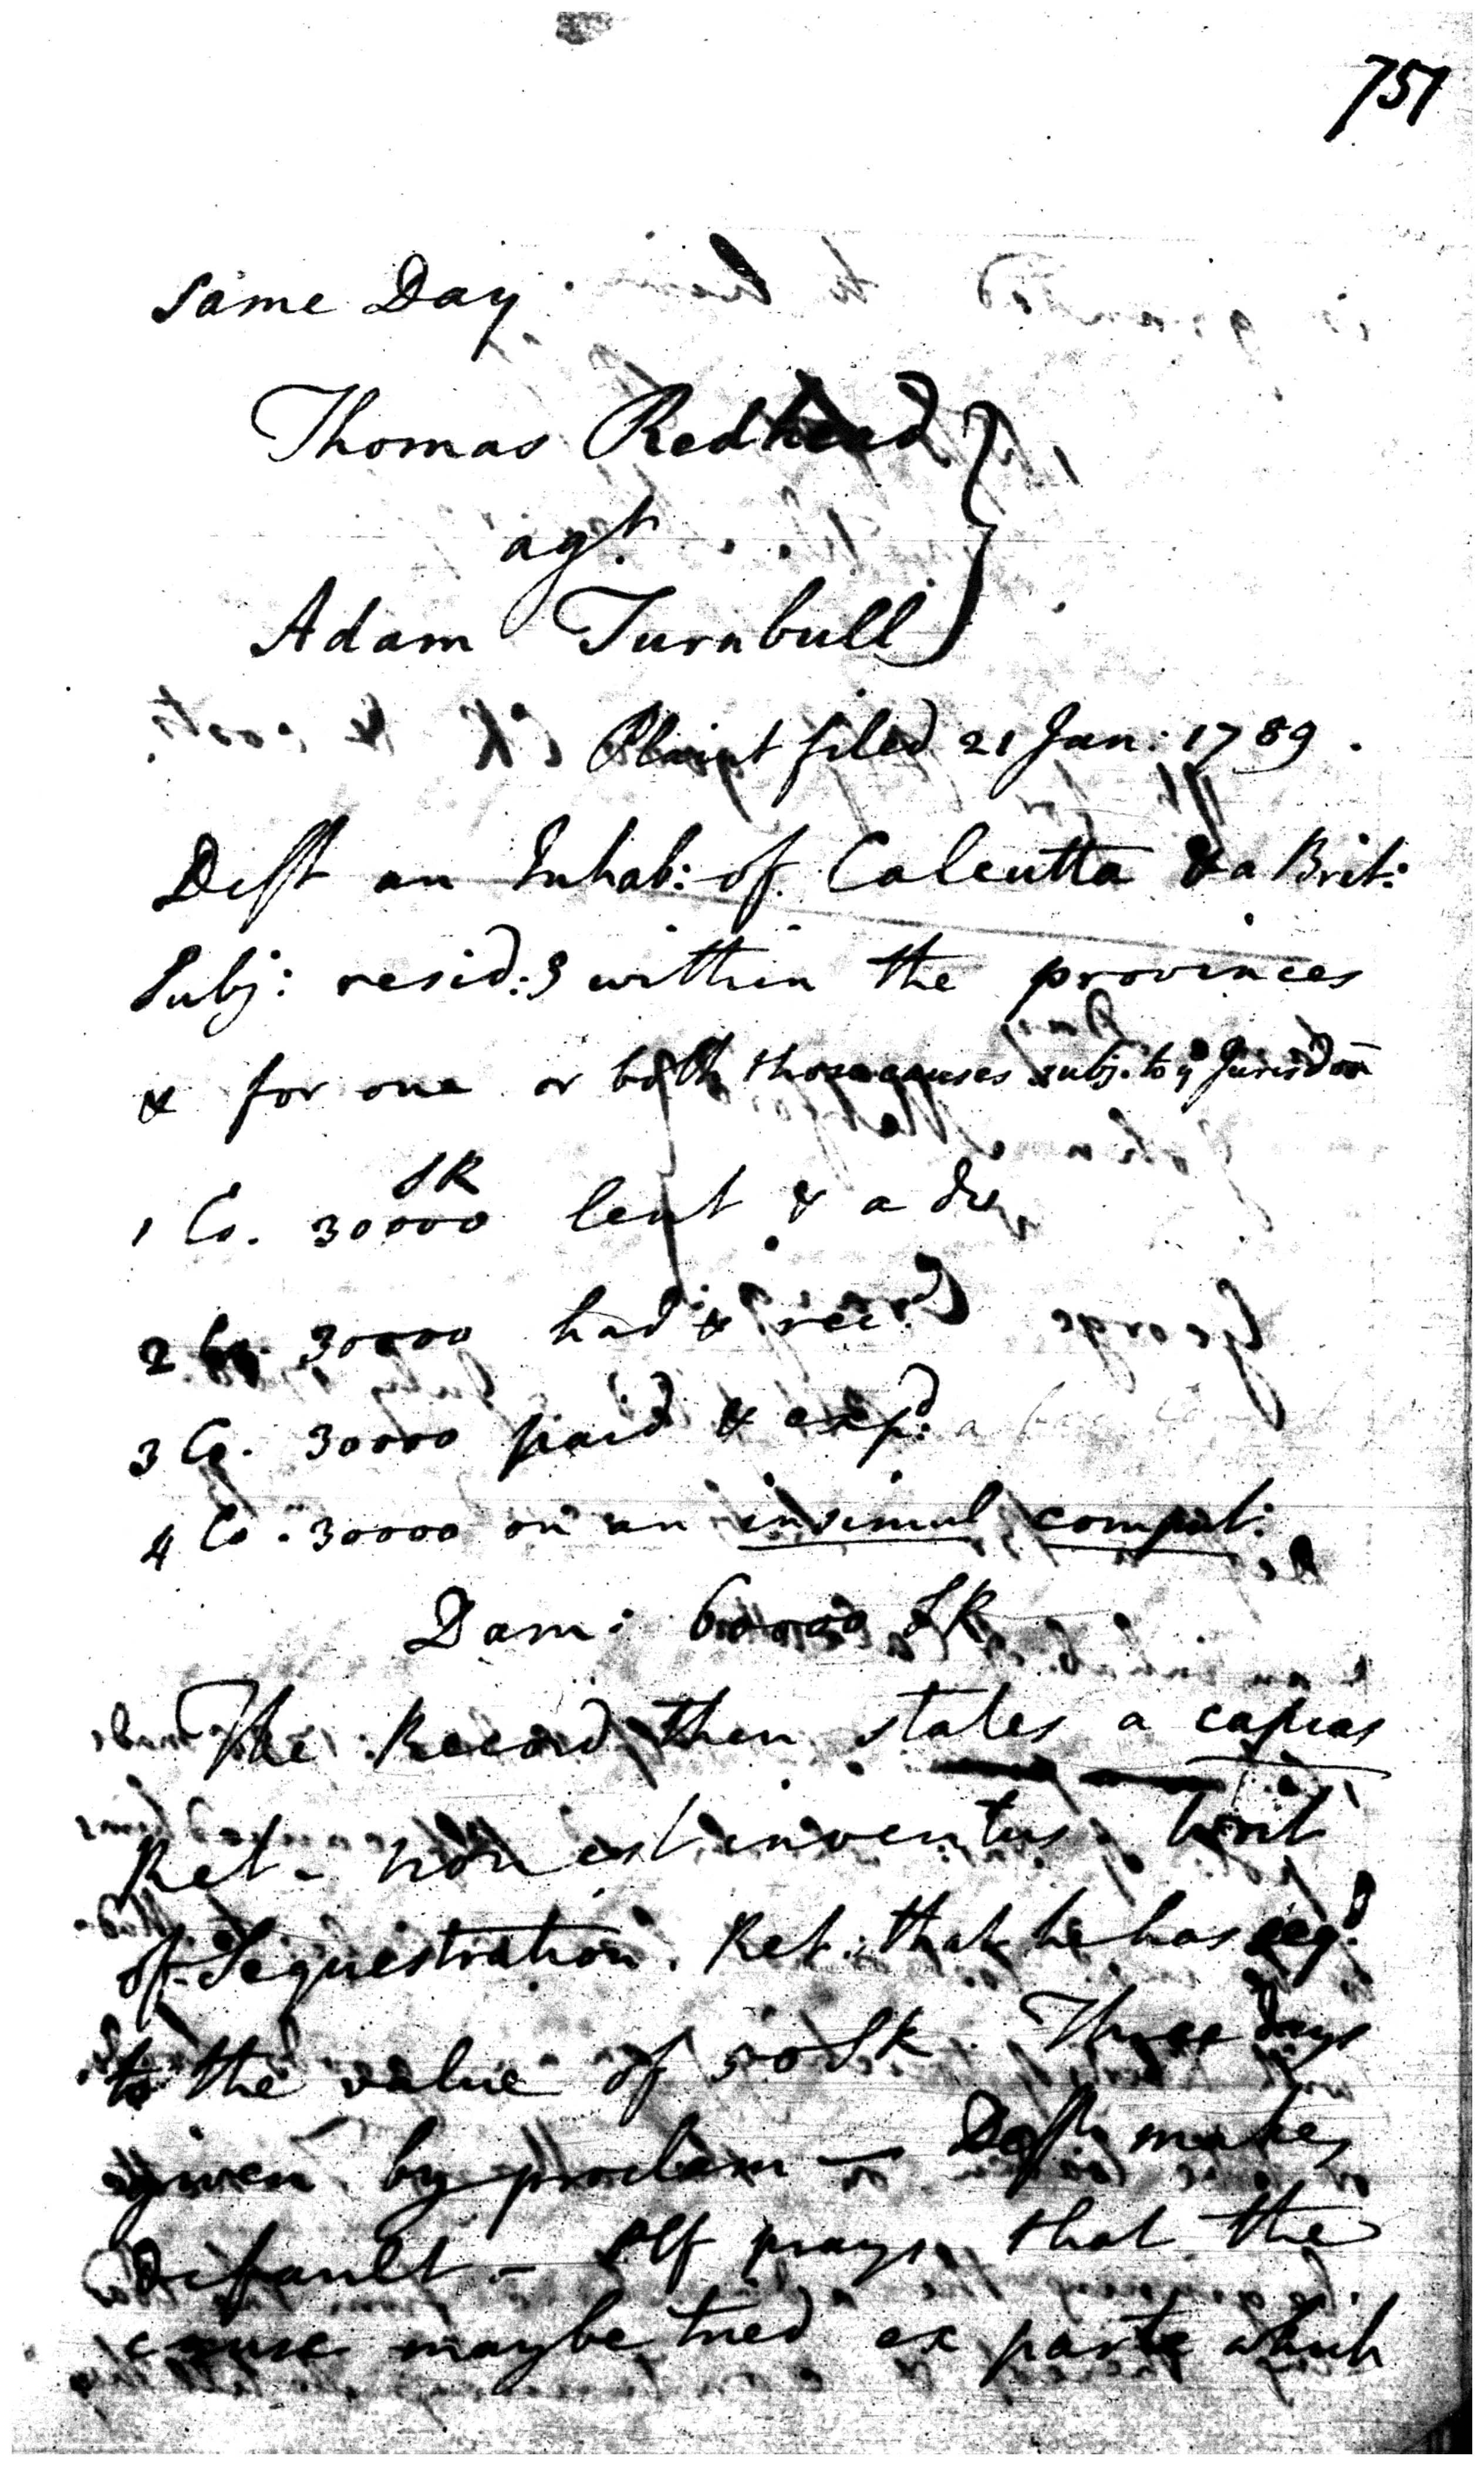 751
Same Day
Thomas Redhead
agt
Adam Turnbull
Plaint filed 21 Jan: 1789.
Deft an Inhab: of Calcutta & a Brit:
Subj: resid:g within the provinces
& for one or both those causes subj: to ye Jurisdon
SR
1 Co. 30000 lent & adv
2 Co. 30000 had & recd
3 Co. 30000 paid & expd:
4 Co. 30000 on an insimul comput:
Dam: 60000 SR
The Record then states a capias
Ret. non est inventus. Writ
of Sequestration. Ret. that he has seqd
to the value of 50 SR. Three days
given by proclam — Deft makes
default – Plf prays that the
cause may be tried ex parte which